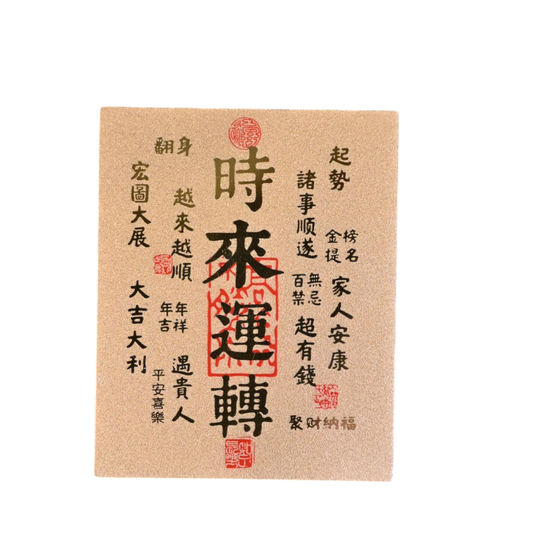 起勢
家人安康
金榜
提名
諸事順遂
百無
禁忌
超有錢
聚财纳福
時來運轉
翻身
越來越順
年年
吉祥
遇貴人
平安喜樂
宏圖大展
大吉大利